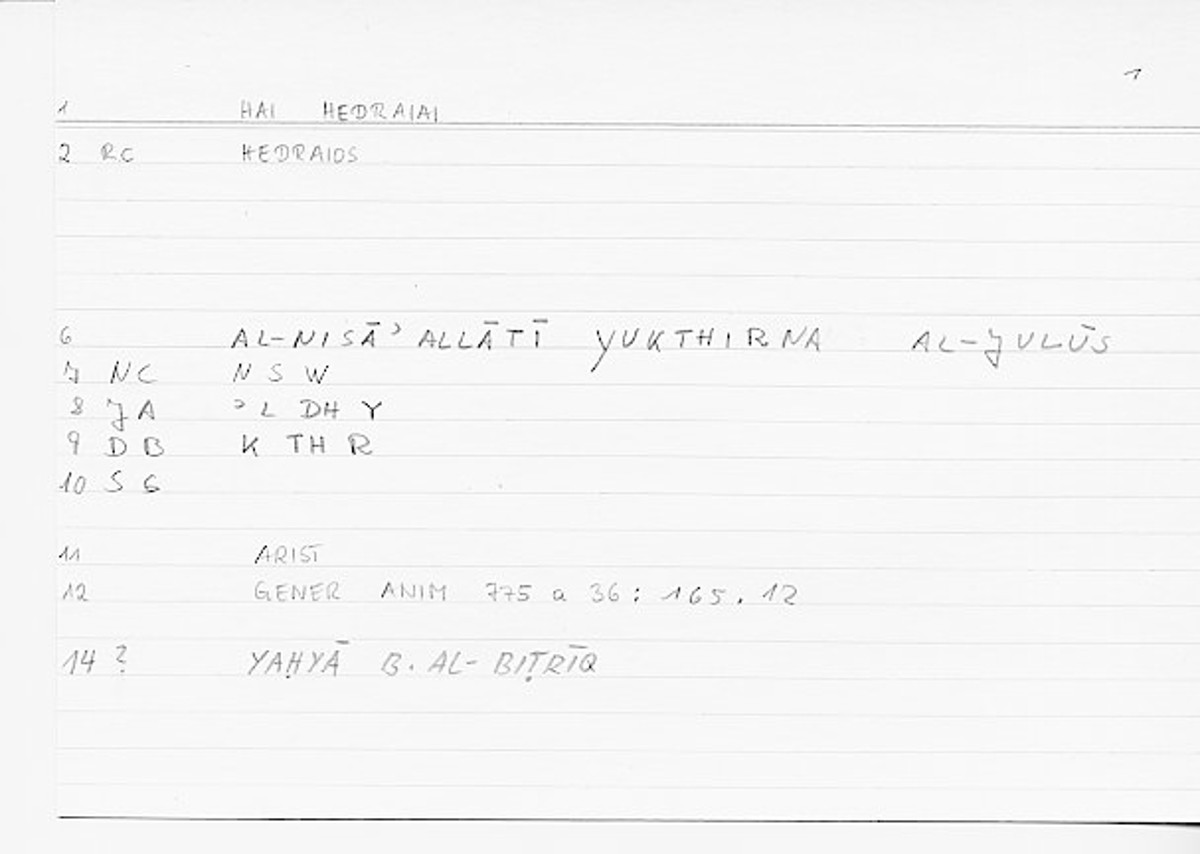 1
1 HAI HEDRAIAI
2 RC HEDRAIOS
6 AL-NISĀʾ ALLĀTĪ YUKTHIRNA AL-JULŪS
7 NC N S W
8 JA ʾ L DH Y
9 DB K TH R
10 SG
11 ARIST
12 GENER ANIM 775 a 36 : 165.12
14 ? YAḤYĀ B. AL-BIṬRĪQ